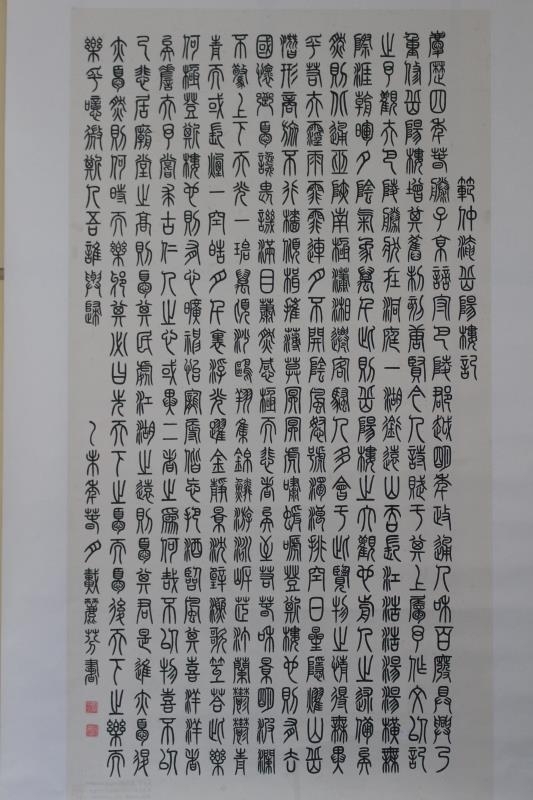 範仲淹岳陽樓記
慶曆四年春滕子京謫守巴陵郡越明年政通人和百廢具興乃
重修岳陽樓增其舊制刻唐賢今人詩賦于其上屬予作文以記
之予觀夫巴陵勝狀在洞庭一湖銜遠山吞長江浩浩湯湯橫無
際涯朝暉夕陰氣象萬千此則岳陽樓之大觀也前人之述備矣
然則北通巫峽南極瀟湘遷客騷人多會于此覽物之情得無異
乎若夫霪雨霏霏連月不開陰風怒號濁浪排空日星隱耀山岳
潛形商旅不行檣傾楫摧薄暮冥冥虎嘯猿啼登斯樓也則有去
國懷鄉憂讒畏譏滿目蕭然感極而悲者矣至若春和景明波瀾
不驚上下天光一碧萬頃沙鷗翔集錦鱗游泳岸芷汀蘭鬱鬱青
青而或長煙一空皓月千里浮光躍金靜影沈璧漁歌互答此樂
何極登斯樓也則有心曠神怡寵辱偕忘把酒臨風其喜洋洋者
矣嗟夫予嘗求古仁人之心或異二者之為何哉不以物喜不以
己悲居廟堂之高則憂其民處江湖之遠則憂其君是進亦憂退
亦憂然則何時而樂耶其必曰先天下之憂而憂後天下之樂而
樂乎噫微斯人吾誰與歸
乙未年春月戴芬書